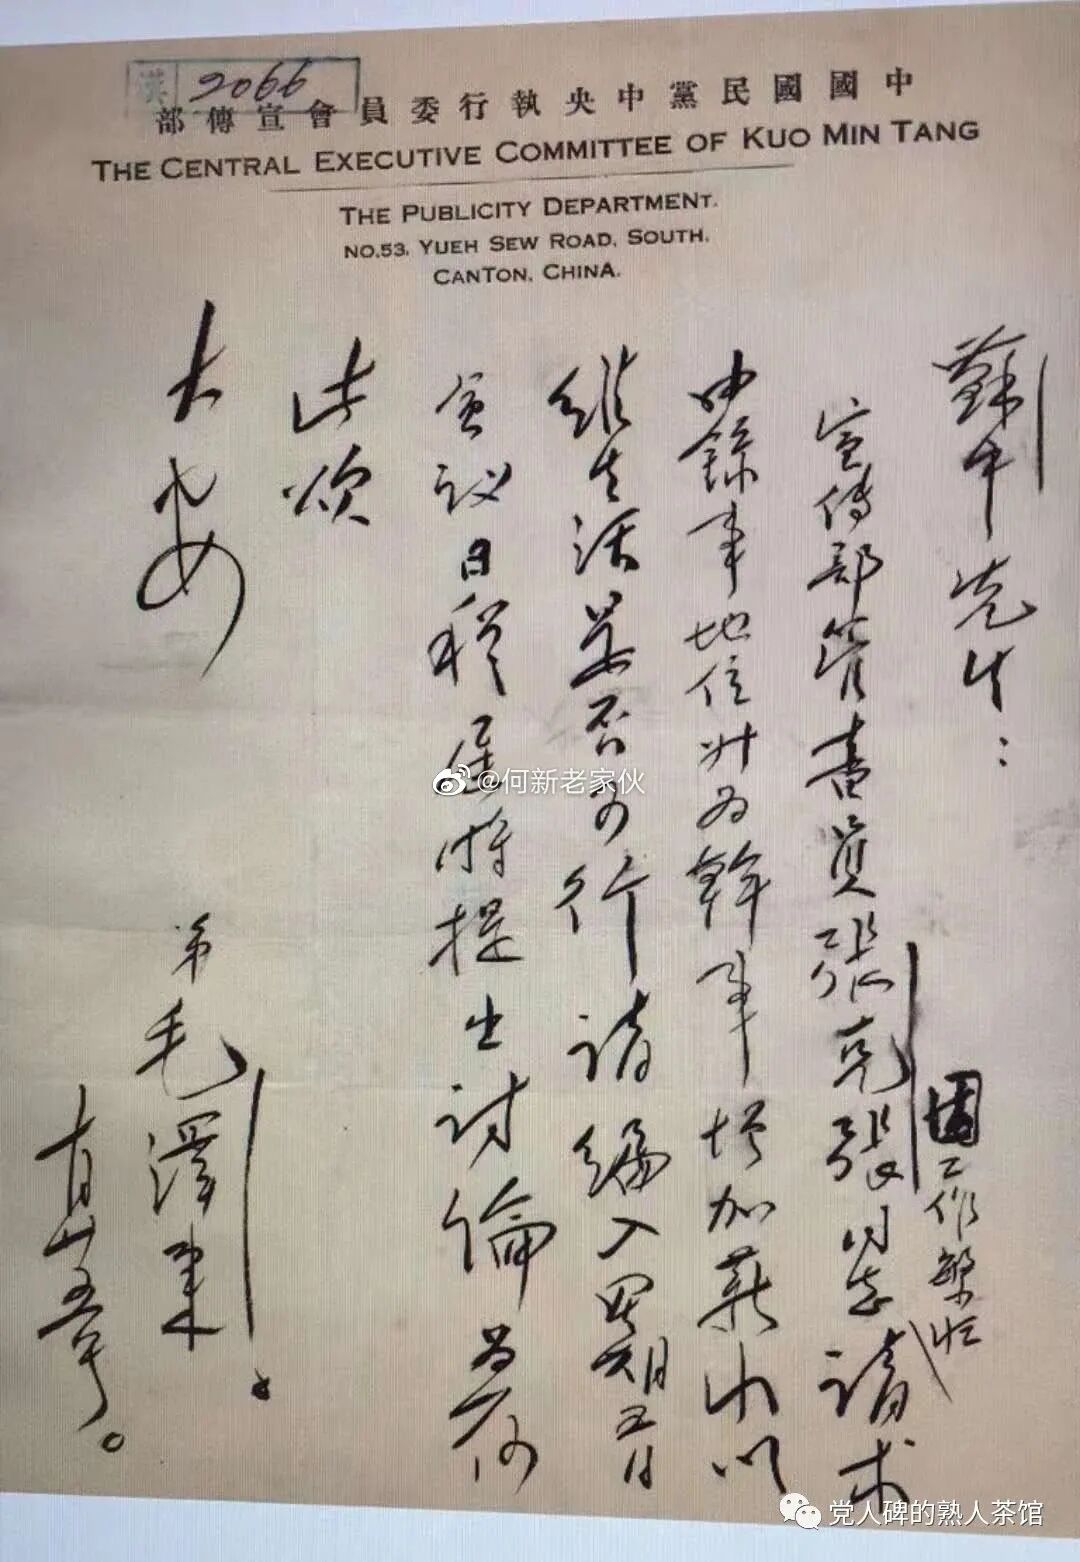 漢 2066
中國國民黨中央執行委員會宣傳部
THE CENTRAL EXECUTIVE COMMITTEE OF KUO MIN TANG
THE PUBLICITY DEPARTMENT.
NO.53, YUEH SEW ROAD, SOUTH.
CANTON, CHINA.
先生：
宣傳部管書員張克張同志請求
因工作繁忙
由錄事地位升为幹事增加薪水以
維生活是否可行請編入星期五日
會议日程屆時提出討論为荷
此頌
大安
弟毛澤東。
五號。
@何新老家伙
党人碑的熟人茶馆